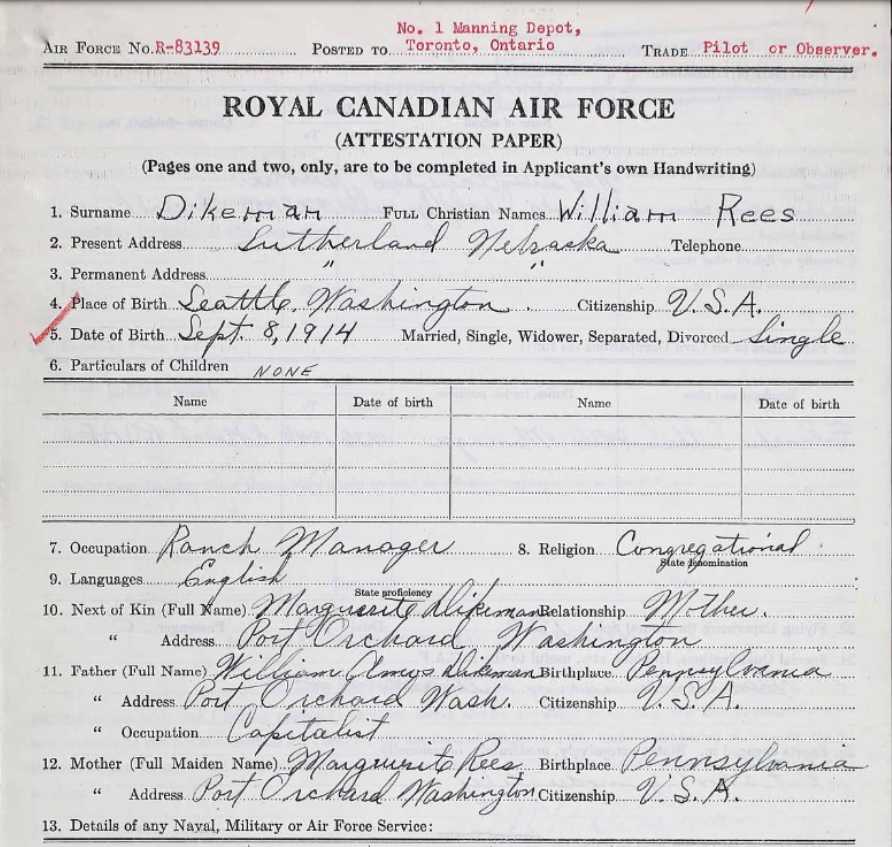 No. 1 Manning Depot,
AIR FORCE No. R-83139 POSTED TO Toronto, Ontario TRADE Pilot or Observer.
ROYAL CANADIAN AIR FORCE
(ATTESTATION PAPER)
(Pages one and two, only, are to be completed in Applicant's own Handwriting)
1. Surname Dikeman FULL Christian Names William Rees
2. Present Address Sutherland Nebraska Telephone
3. Permanent Address " "
4. Place of Birth Seattle, Washington. Citizenship U.S.A.
5. Date of Birth Sept. 8, 1914 Married, Single, Widower, Separated, Divorced Single
6. Particulars of Children NONE
Name Date of birth Name Date of birth
7. Occupation Ranch Manager 8. Religion Congregational
State denomination
9. Languages English
State proficiency
10. Next of Kin (Full Name) Marguerite Dikeman Relationship Mother.
" Address Port Orchard Washington
11. Father (Full Name) William Amos Dikeman Birthplace Pennsylvania
" Address Port Orchard Wash. Citizenship U.S.A.
" Occupation Capitalist
12. Mother (Full Maiden Name) Marguerite Rees Birthplace Pennsylvania
" Address Port Orchard Washington Citizenship U.S.A.
13. Details of any Naval, Military or Air Force Service: